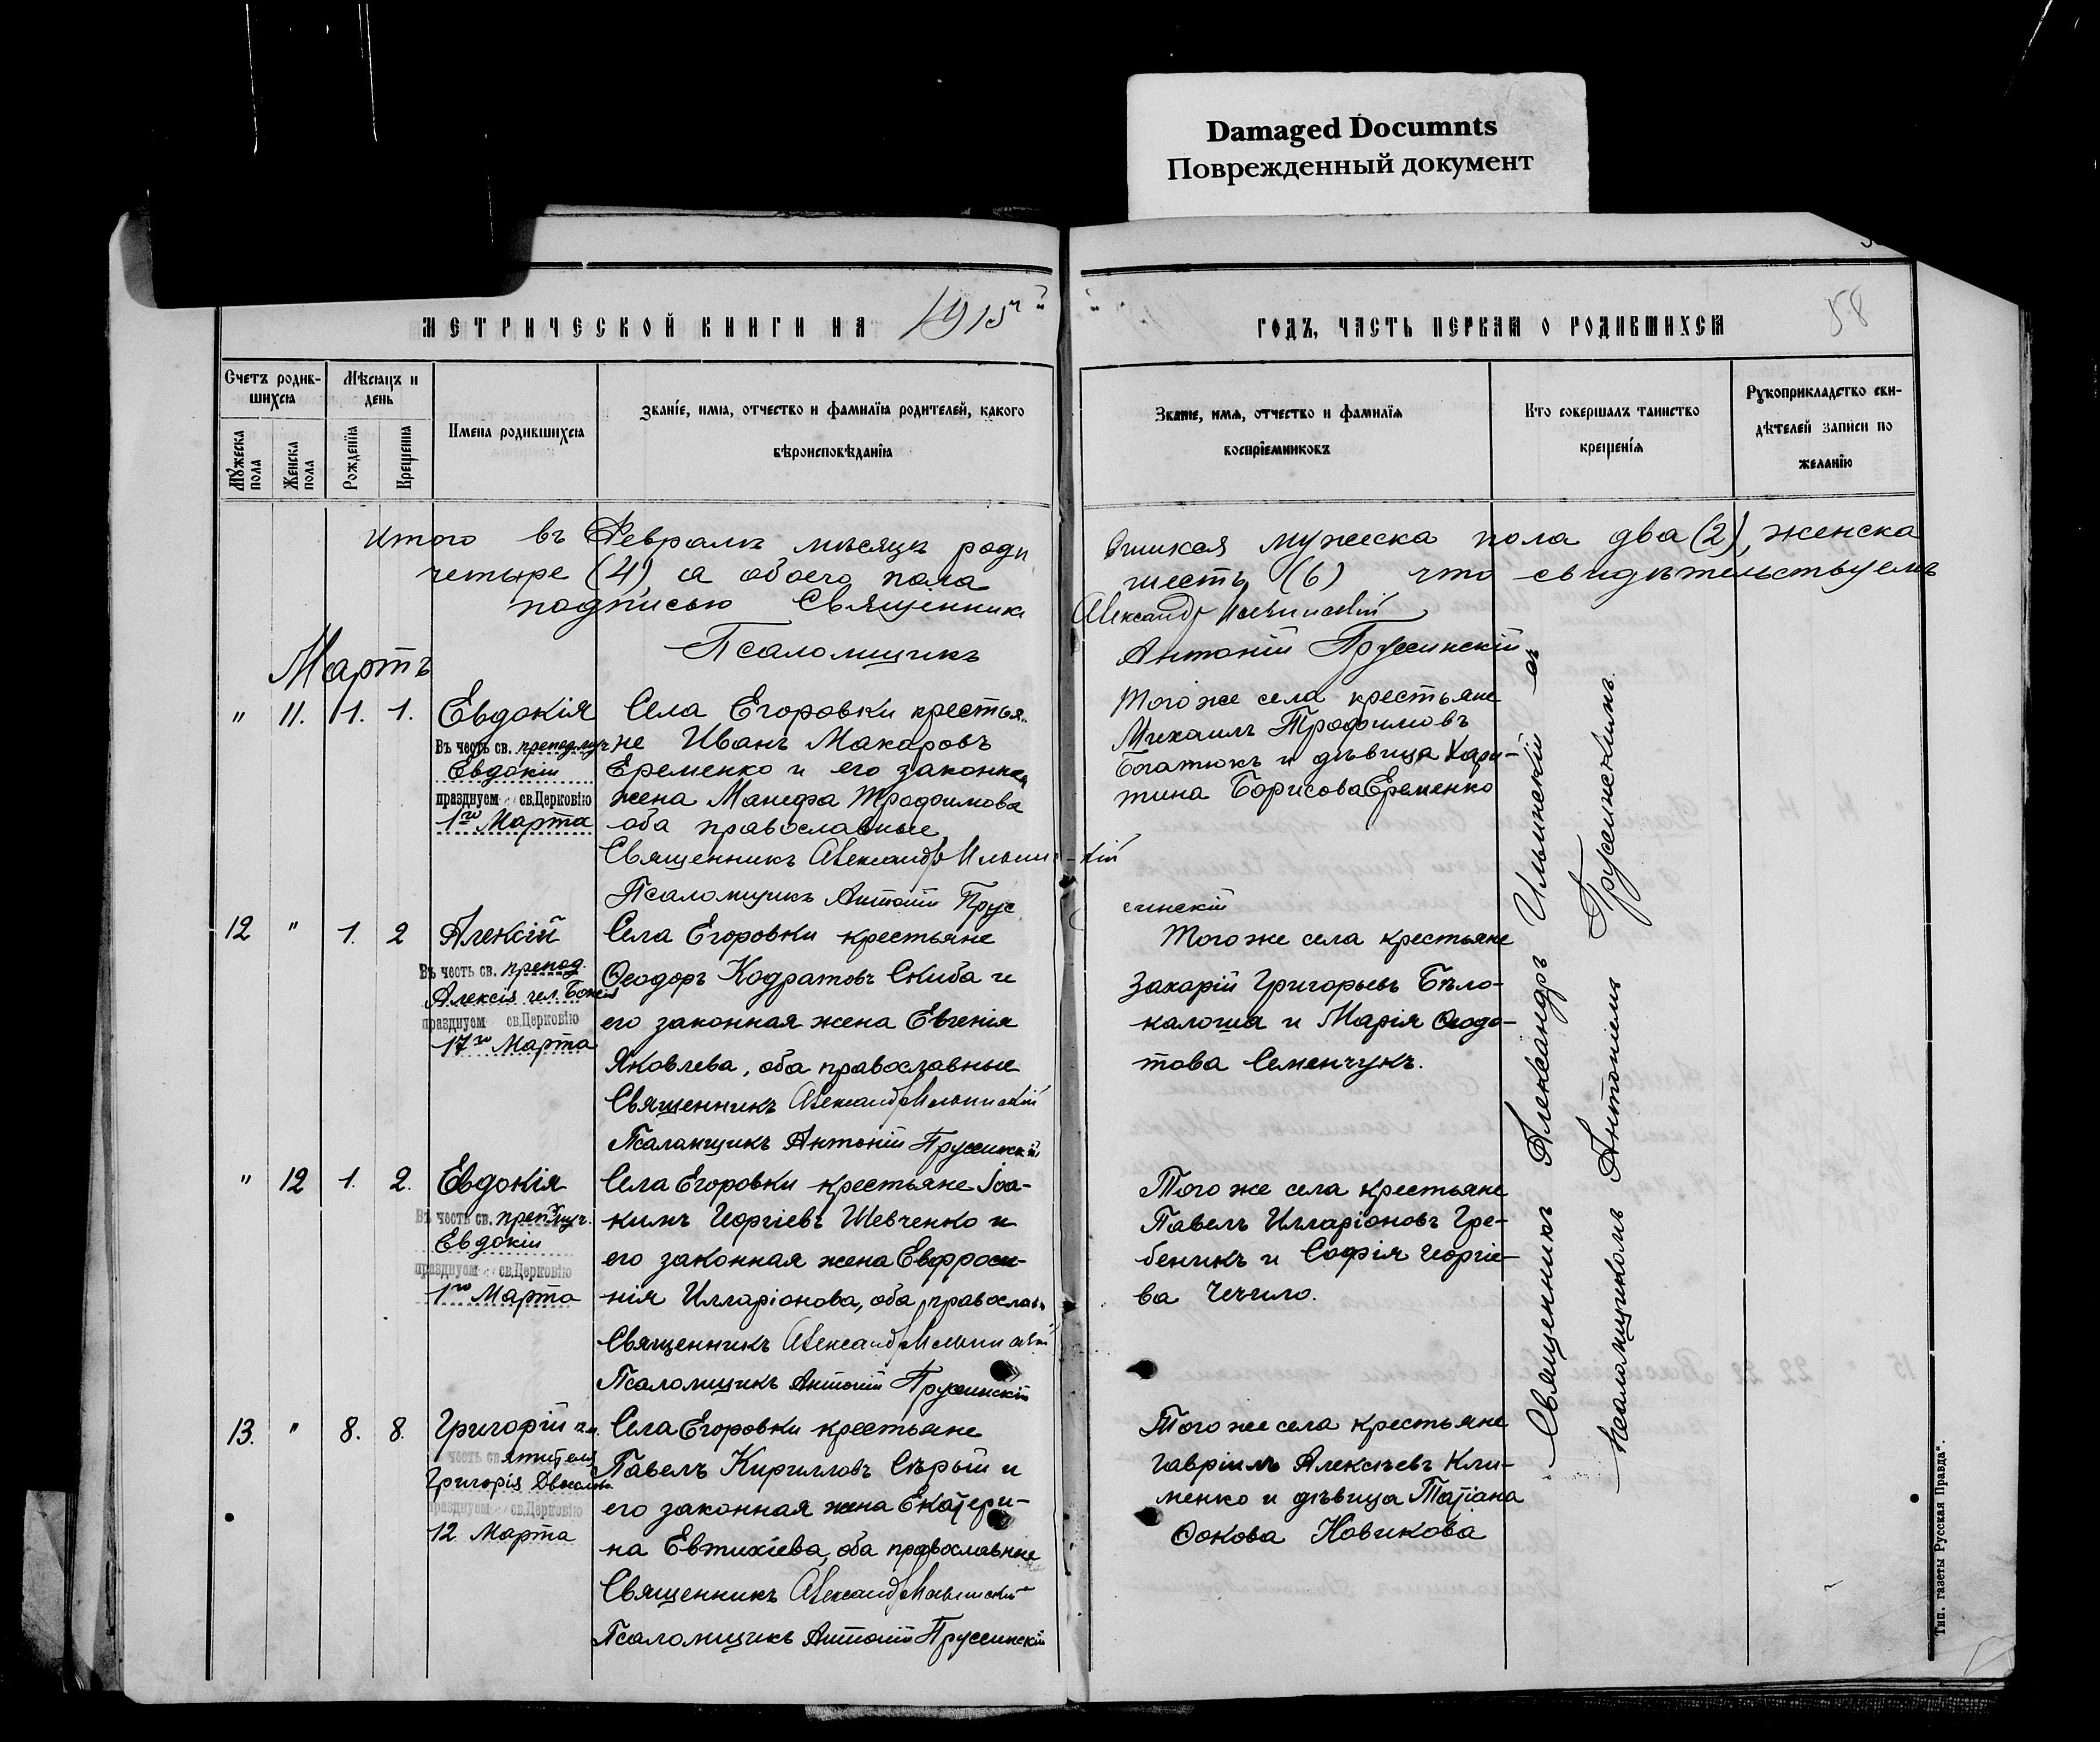 Damaged Documnts
Поврежденный документ
МЕТРИЧЕСКОЙ КНИГИ НА 1915
ГОДЪ, ЧАСТЬ ПЕРВАЯ О РОДИВШИХСЯ
58
Счетъ родив-
шихся
Мужеска пола
Женска пола
Мѣсяцъ и
день
Рожденія
Крещенія
Имена родившихся
Званіе, имя, отчество и фамилія родителей, какого
вѣроисповѣданія
Званіе, имя, отчество и фамилія
воспріемниковъ
Кто совершалъ таинство
крещенія
Рукоприкладство сви-
дѣтелей записи по
желанію
Итого въ Февралѣ мѣсяцѣ роди
вшихся мужеска пола два (2), женска
четыре (4), а обоего пола
шесть (6) что свидѣтельствуемъ
подписью Священникъ
Александръ Ильинскій
Псаломщикъ
Антоній Пруссинскій
Мартъ
" 11. 1. 1.
Евдокія
Въ честь св. преподмуч
Евдокіи
празднуем св.Церковію
1го Марта
Села Егоровки крестья-
не Иванъ Макаровъ
Еременко и его законная
жена Манефа Трофимова
оба православные
Священникъ Александръ Ильинскій
Псаломщикъ Антоній Пруссинскій
Того же села крестьяне
Михаилъ Трофимовъ
Богатюкъ и дѣвица Хари-
тина Борисова Еременко
12 " 1. 2
Алексій
Въ честь св. препод.
Алексія чел. Божія
празднуем св.Церковію
17го Марта
Села Егоровки крестьяне
Ѳеодоръ Кодратовъ Скиба и
его законная жена Евгенія
Яковлева, оба православные
Священникъ Александръ Ильинскій
Псаломщикъ Антоній Пруссинскій
Того же села крестьяне
Захарій Григорьевъ Бѣло-
калоша и Марія Ѳеодо-
това Семенчукъ.
" 12 1. 2.
Евдокія
Въ честь св. препмуч.
Евдокіи
празднуем св.Церковію
1го Марта
Села Егоровки крестьяне Іоа-
кимъ Георгіевъ Шевченко и
его законная жена Евфроси-
нія Илларіонова, оба православн
Священникъ Александръ Ильинскій
Псаломщикъ Антоній Пруссинскій
Того же села крестьяне
Павелъ Илларіоновъ Гре-
беникъ и Софія Георгіе-
ва Чечило.
13. " 8. 8.
Григорій
честь св. святителя
Григорія Двоеслова
празднуем св.Церковію
12 Марта
Села Егоровки крестьяне
Павелъ Кирилловъ Сѣрый и
его законная жена Екатери-
на Евтихіева, оба православные
Священникъ Александръ Ильинскій
Псаломщикъ Антоній Пруссинскій
Того же села крестьяне
Гавріилъ Алексѣевъ Кли-
менко и дѣвица Татіана
Ѳокова Новикова
Священникъ Александръ Ильинскій съ
псаломщикомъ Антоніемъ Пруссинскимъ.
Тип. газеты Русская Правда".